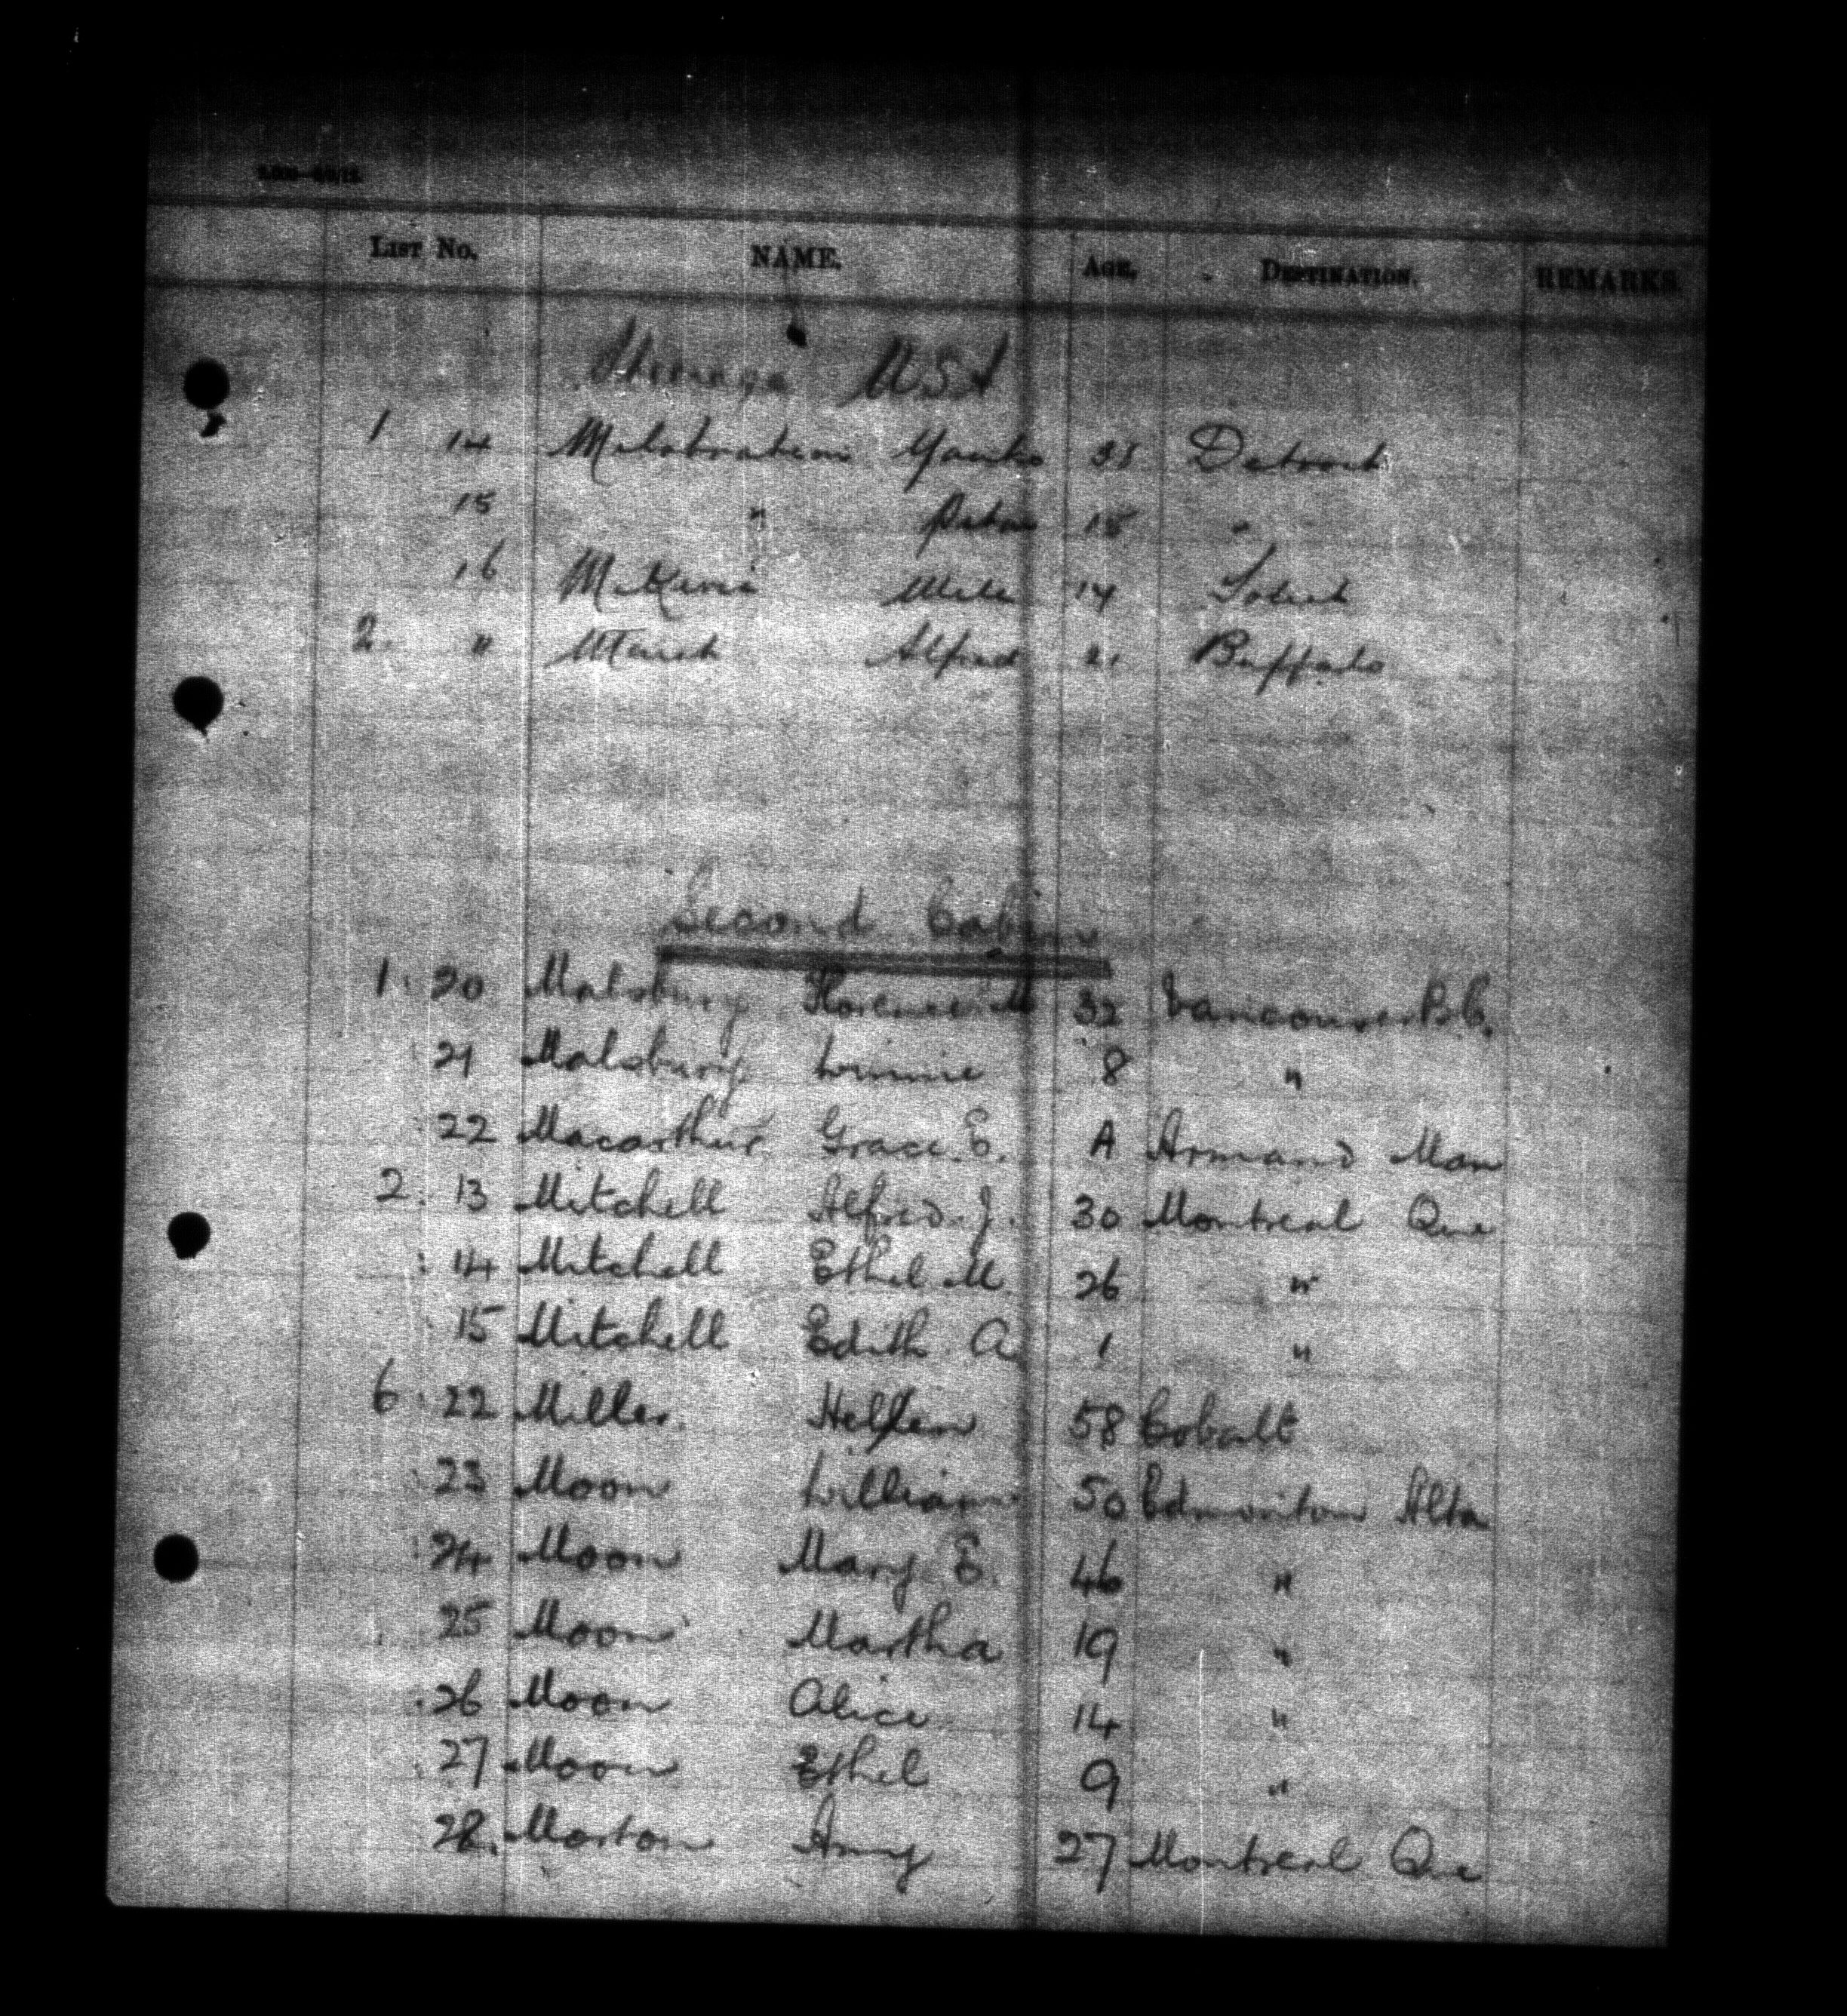 LIST NO. NAME. AGE. DESTINATION. REMARKS.
Steerage USA
1 14 Yanko Detroit
15 " Peter 15 "
16 Mile 14
2. " March Alfred 21 Buffalo
Second Cabin
1. 20 Malsbury Florence M 32 Vancouver B.C.
21 Malsbury Winnie 8 "
22 Macarthur Grace. E. A Armand Man
2. 13 Mitchell Alfred. J. 30 Montreal Que
14 Mitchell Ethel. M 26 "
15 Mitchell Edith. A. 1 "
6. 22 Miller. Hellen 58 Cobalt
23 Moon William 50 Edmonton Alta
24 Moon Mary E. 46 "
25 Moon Martha 19 "
26 Moon Alice 14 "
27 Moon Ethel 9 "
28. Morton Amy 27 Montreal Que